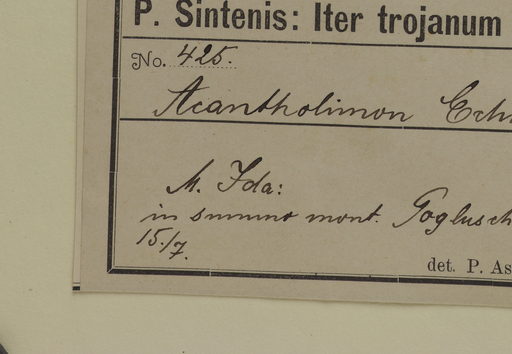 P. Sintenis: Iter trojanum
No. 425.
Acantholimon Echi
M. Ida:
in summo mont. Goglusch
15./7.
det. P. As